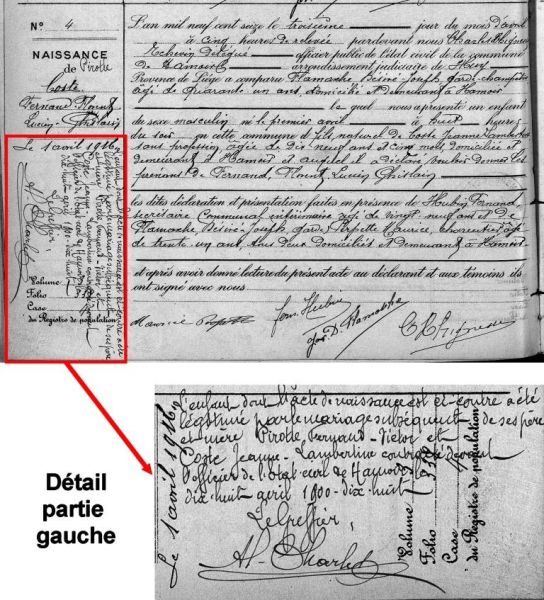 N° 4
NAISSANCE
de Pirotte
Coste
Fernand Florent
Lucien Ghislain
Le 1 avril 1916
L'an mil neuf cent seize le troisième jour du mois d'avril
à cinq heures de relevée pardevant nous Charles
Echevin Délégué officier public de l'état civil de la commune
de Hamoir arrondissement judiciaire de Huy
Province de Liège a comparu Damanche, Désiré Joseph, garde champêtre
âgé de quarante un ans, domicilié et demeurant à Hamoir
lequel nous a présenté un enfant
du sexe masculin né le premier avril à huit heures
du soir en cette commune fils naturel de Coste Jeanne Lambertine
sans profession, âgée de dix neuf ans et cinq mois, domiciliée et
demeurant à Hamoir et auquel il a déclaré vouloir donner les
prénoms de Fernand, Florent, Lucien, Ghislain
les dites déclaration et présentation faites en présence de Hubin, Fernand,
secrétaire Communal intérimaire âgé de vingt neuf ans et de
Maurice, âgé
de trente un ans, tous deux domiciliés et demeurant à Hamoir
et après avoir donné lecture du présent acte au déclarant et aux témoins ils
ont signé avec nous.
Maurice
Fern. Hubin
Jos. D.
Volume
Folio 338
Case
du Registre de population
Détail
partie
gauche
Le 1 avril 1916
L'enfant dont l'acte de naissance est ci-contre a été
légitimé par le mariage subséquent de ses père
et mère Pirotte, Fernand-Victor et
Coste Jeanne-Lambertine contracté devant
l'officier de l'état civil de
dix-huit avril 1900-dix-huit
Le Greffier,
Volume
Folio 338
Case 4
du Registre de population